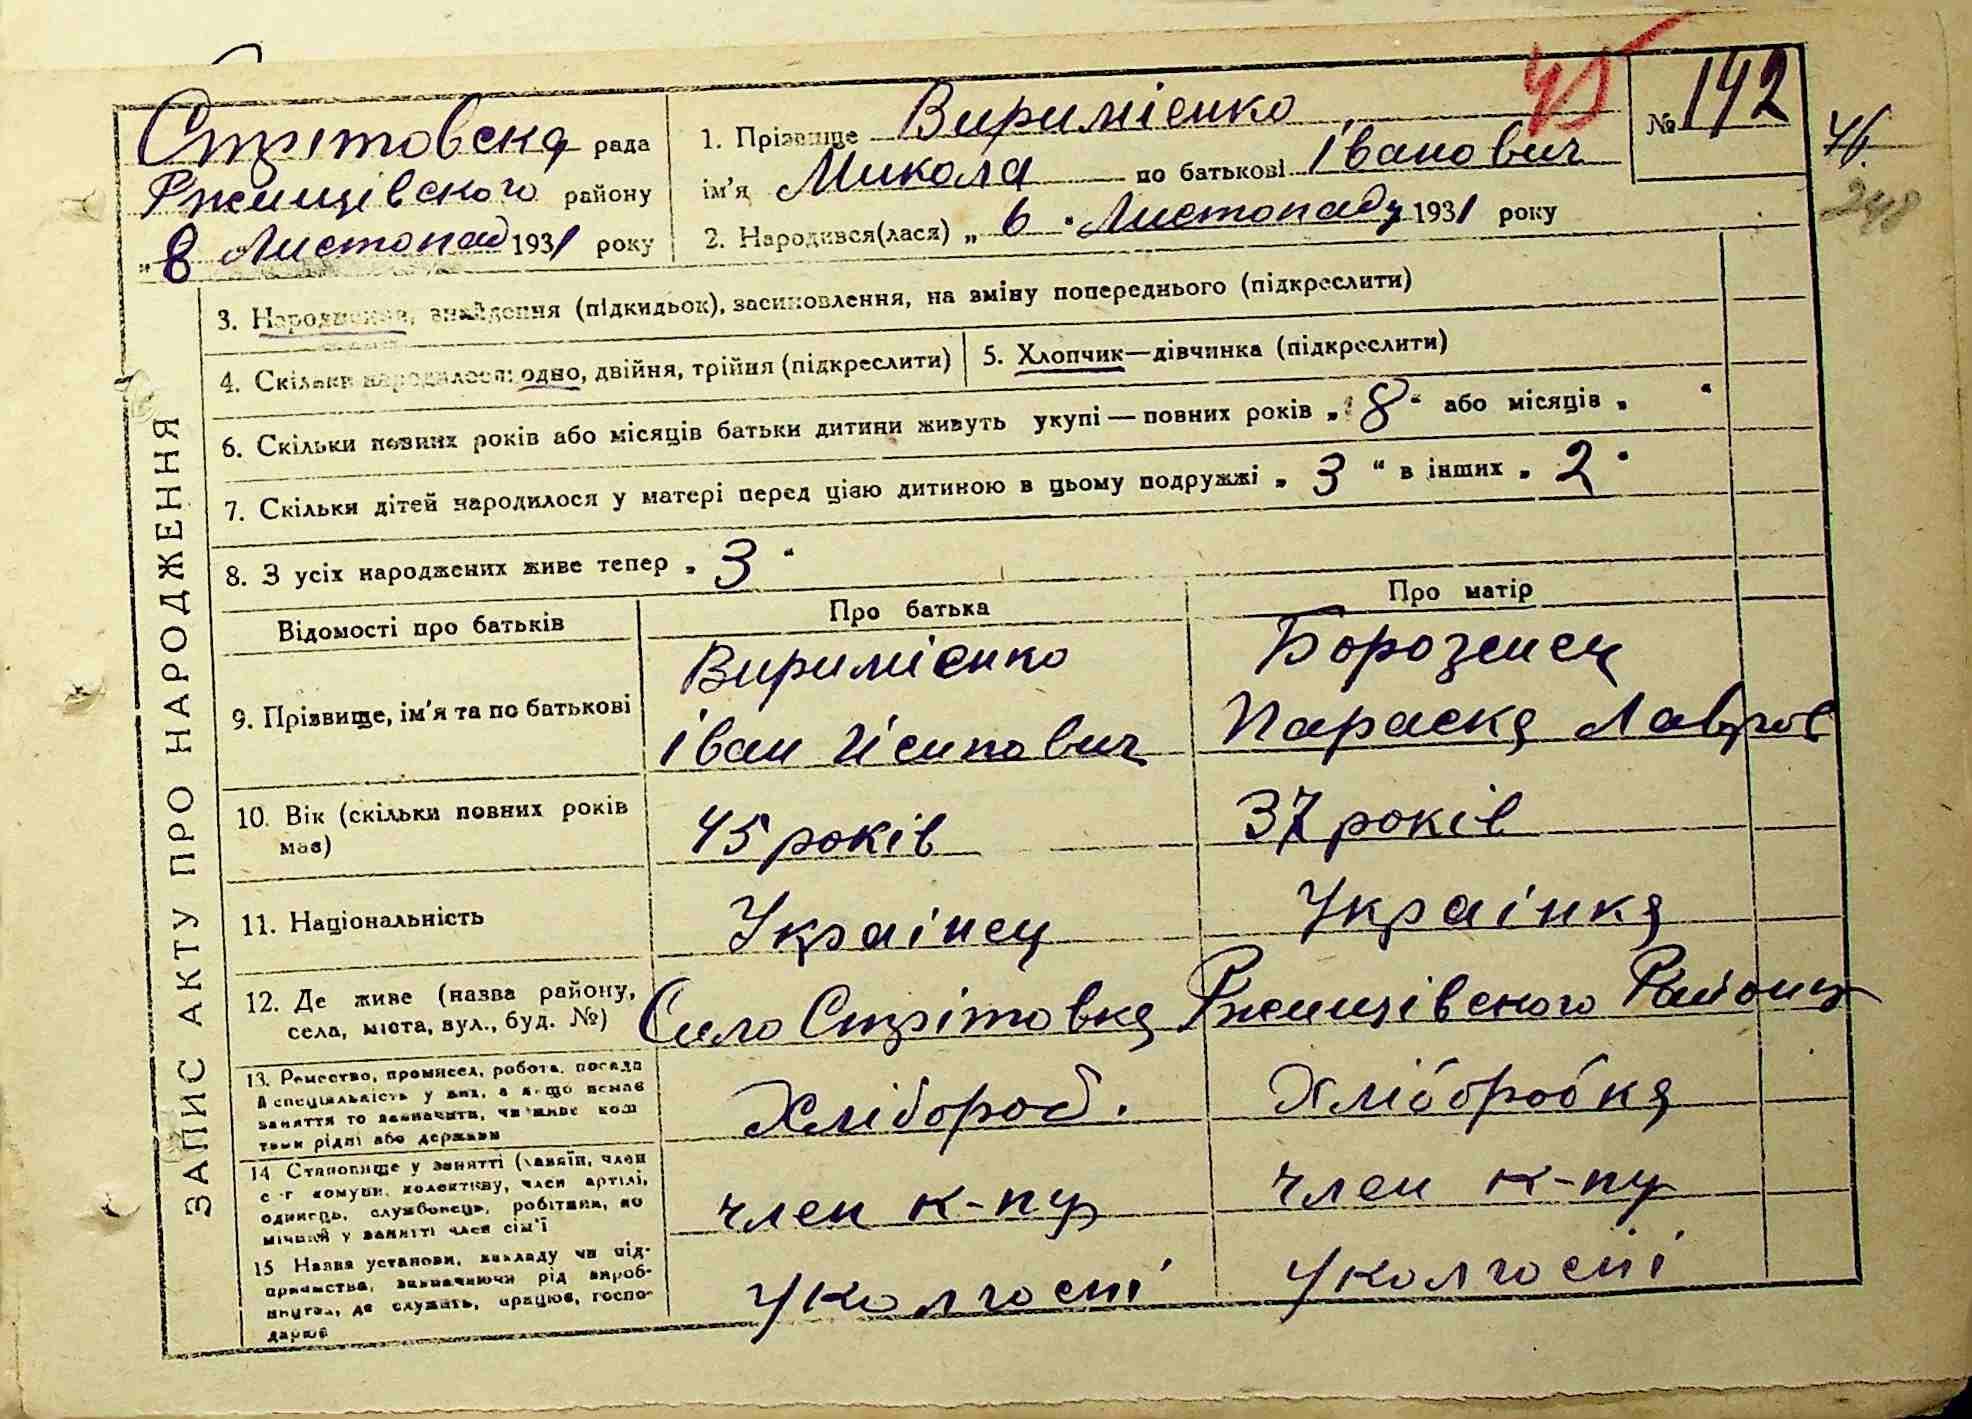 45
Стрітовска рада
Ржищівського району
„8 Листопад 1931 року
1. Прізвище Виримієнко
ім'я Микола по батькові Іванович
№ 142
2. Народився(лася) „ 6 " Листопаду 1931 року
248
ЗАПИС АКТУ ПРО НАРОДЖЕННЯ
3. Народження, знайдення (підкидьок), засиновлення, на зміну попереднього (підкреслити)
4. Скільки народилося: одно, двійня, трійня (підкреслити)
5. Хлопчик—дівчинка (підкреслити)
6. Скільки повних років або місяців батьки дитини живуть укупі — повних років „ 8 " або місяців „ "
7. Скільки дітей народилося у матері перед цією дитиною в цьому подружжі „ 3 " в інших „ 2 "
8. З усіх народжених живе тепер „ 3 "
Відомості про батьків
Про батька
Про матір
9. Прізвище, ім'я та по батькові
Виримієнко
Іван Йсипович
Борозенец
Параска Лавров
10. Вік (скільки повних років
має)
45 років
37 років
11. Національність
Украінец
Украінка
12. Де живе (назва району,
села, міста, вул., буд. №)
Село Стрітовка Ржищівского Району
13. Ремество, промисел, робота, посада
й спеціяльність у них, а якщо немає
заняття то зазначити, чи живе кош
тами рідні або держави
Хлібороб.
Хліборобка
14 Становище у занятті (хазяїн, член
с-г комуни, колективу, член артілі,
одинець, службовець, робітник, по
мічний у занятті член сім'ї
член к-пу
член к-пу
15 Назва установи, закладу чи під-
приємства, зазначаючи рід вироб-
ництва, де служить, працює, госпо-
дарює
У колгоспі
У колгоспі